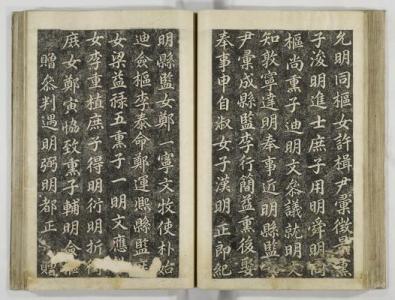 允明同樞女許楫尹彙徵縣熏
子浚明進士庶子用明舜明同
樞尚熏子迪明文參議就明文
知敦寧達明奉事近明縣監
尹彙成縣監李行簡益熏後娶
奉事申自淑女子漢明正郎紀
明縣監女鄭一寧文牧使朴始
迪僉樞李奏命鄭運熙縣監
女梁益祿五熏子一明文應
女李重植庶子得明衍明折衝
庶女鄭寅恊致熏子輔明僉樞
贈參判遇明弼明都正 贈